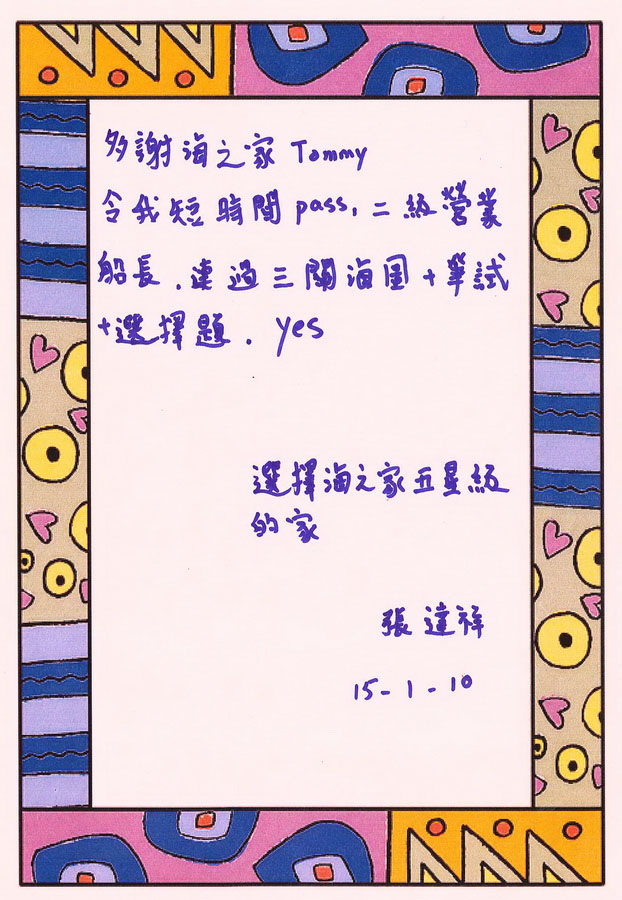 多謝海之家 Tommy
令我短時間 pass, 二級營業
船長,連過三關海圖+筆試
+選擇題. yes
選擇海之家五星級
的家
張達祥
15-1-10